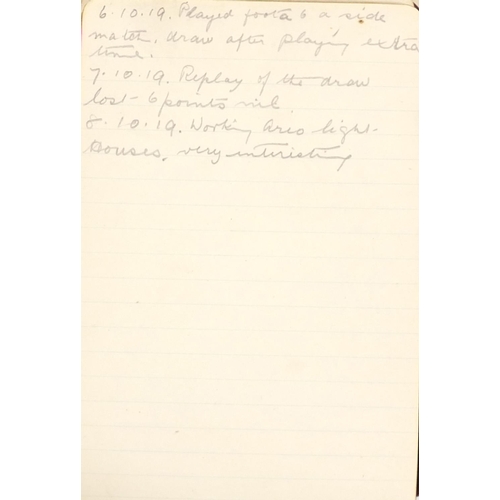 6.10.19. Played foota 6 a side
match, draw after playing extra
time.
7.10.19. Replay of the draw
lost - 6 points nil
8.10.19. Working Arco light-
houses, very interesting